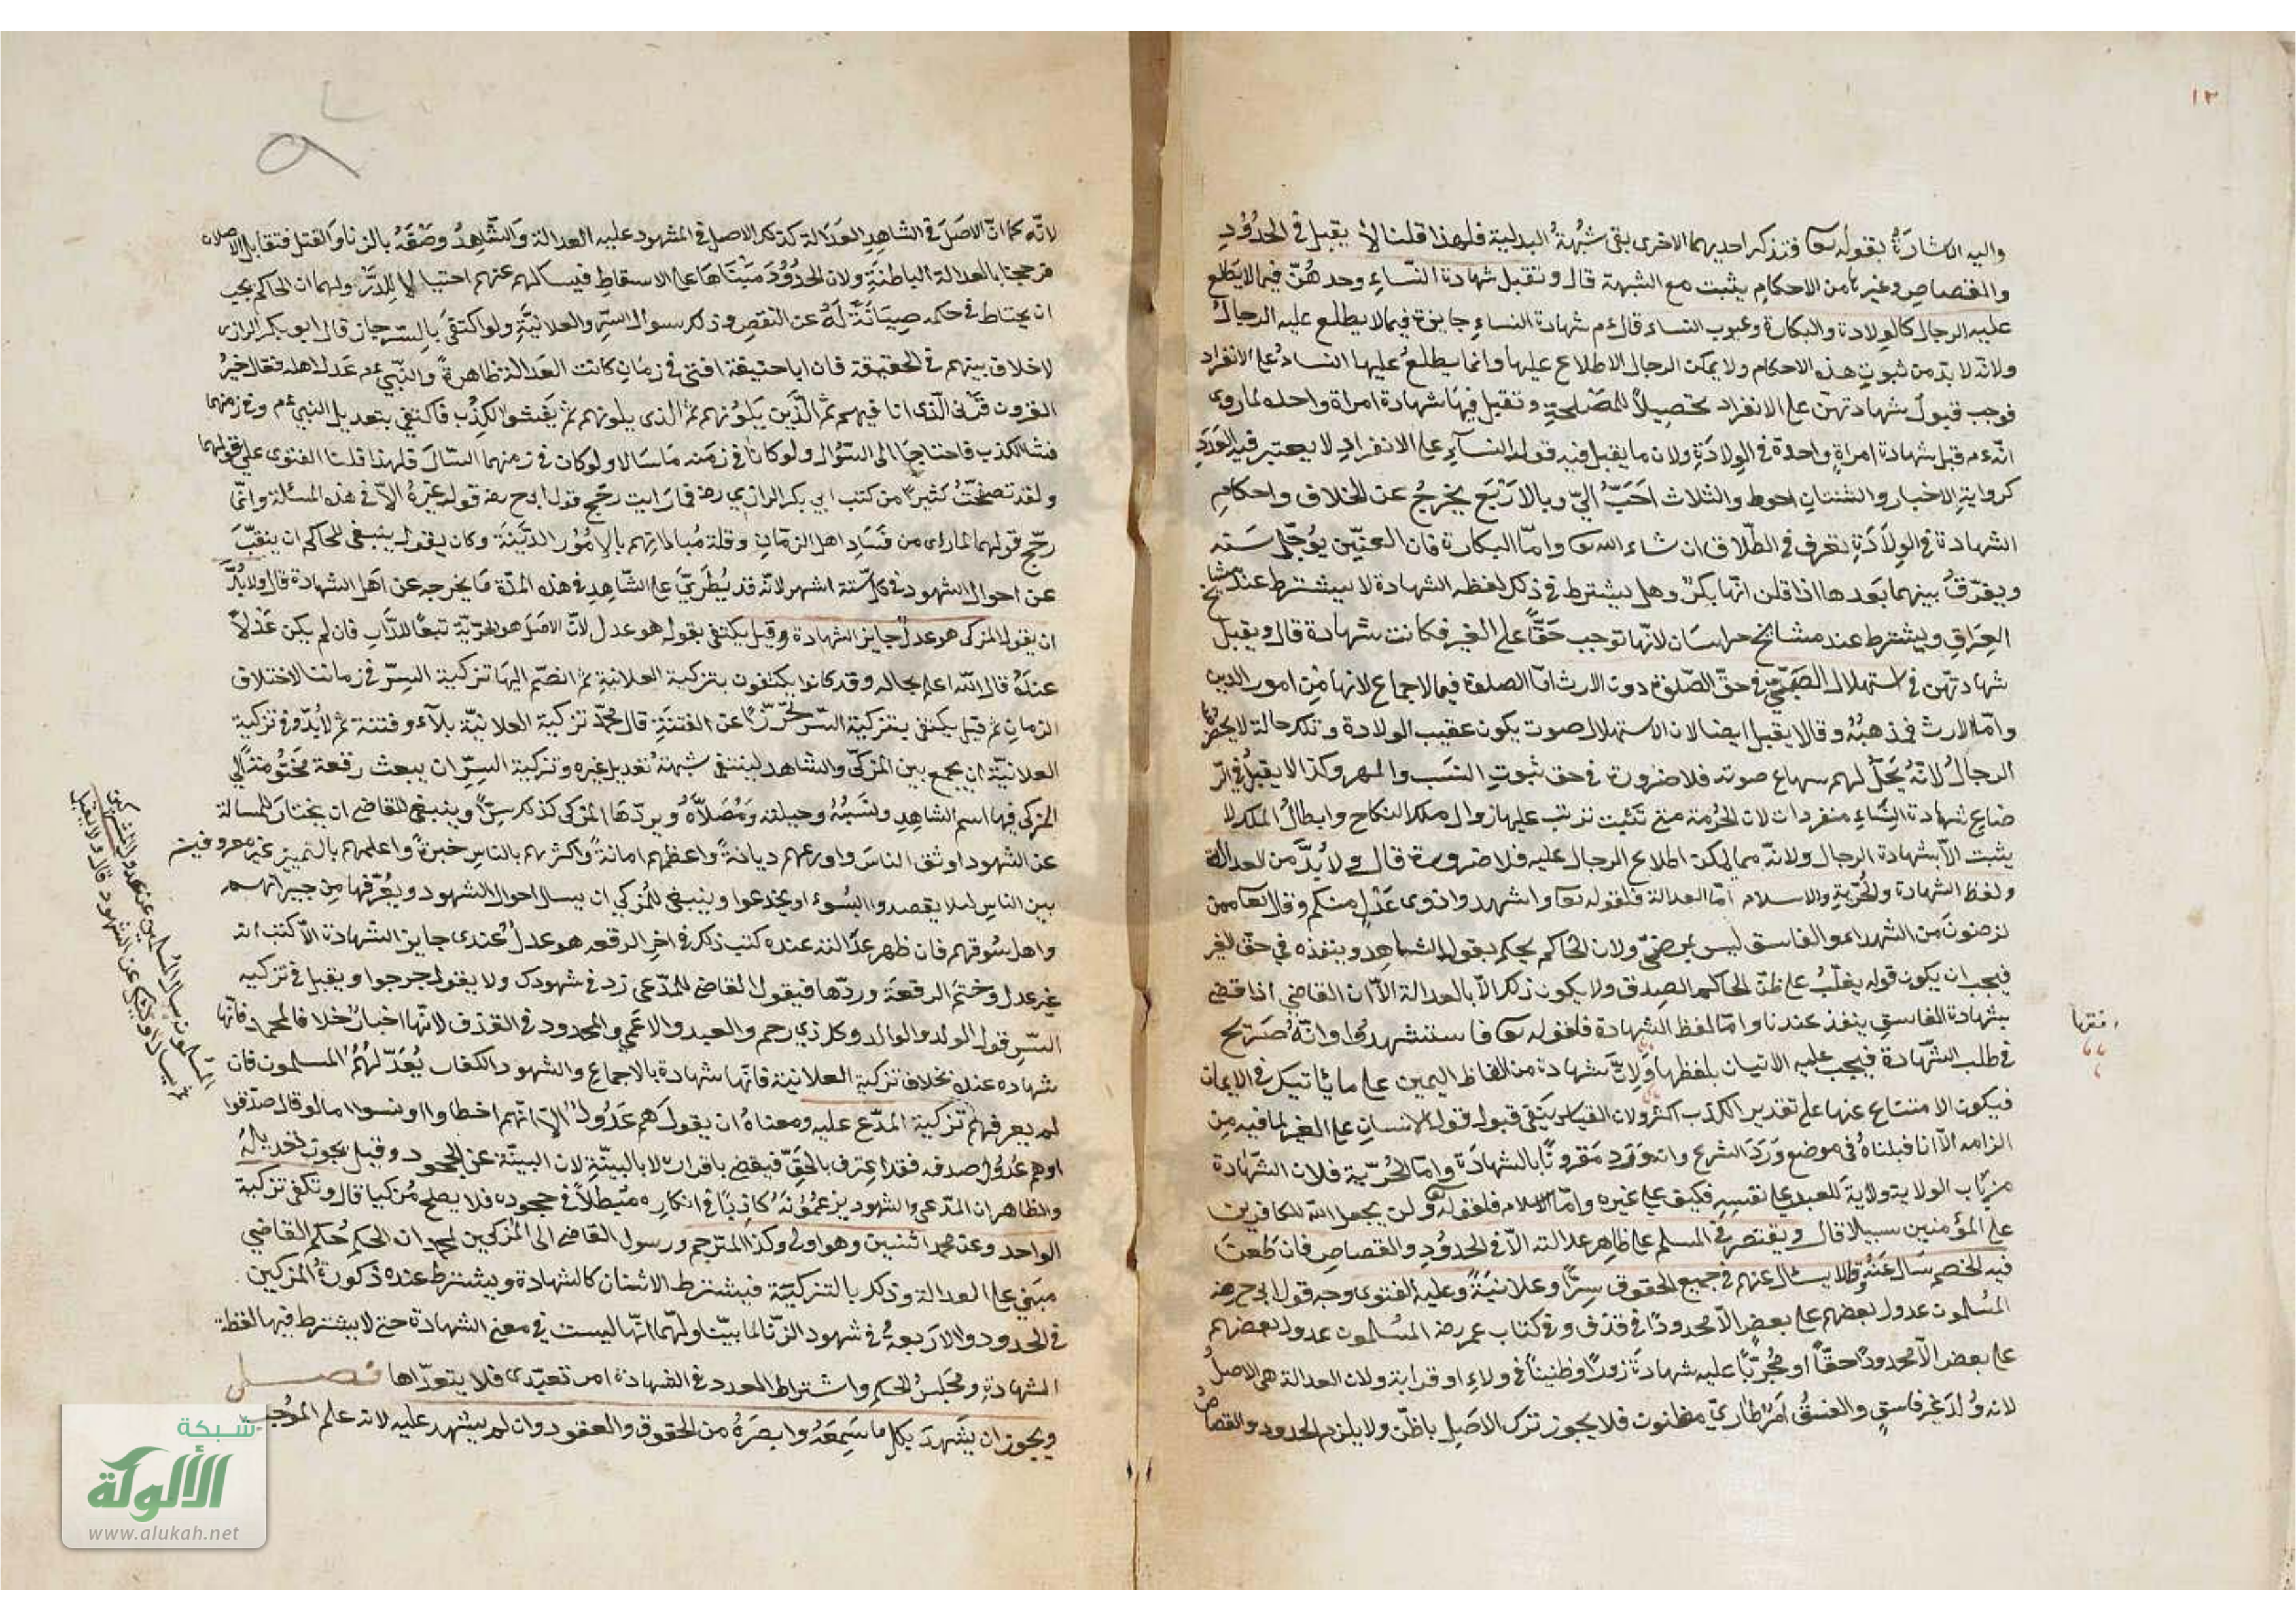 ١٣
واليه الاشارة بقوله تعا فتذكر احديهما الاخرى بقى شبهة البدلية فلهذا قلنا لا يقبل في الحدود
والقصاص وغيرها من الاحكام يثبت مع الشبهة قال وتقبل شهادة النساء وحدهنّ فيما لا يطلع
عليه الرجال كالولادة والبكارة وعيوب النساء قال ءم شهادة النساء جايزة فيما لا يطلع عليه الرجال
ولانه لا بد من ثبوت هذه الاحكام ولا يمكن الرجال الاطلاع عليها وانما يطلع عليها النساء على الانفراد
فوجب قبول شهادتهنّ على الانفراد تحصيلاً للمصلحة وتقبل فيها شهادة امراة واحدة لما روى
انّه ءم قبل شهادة امراةٍ واحدة في الولادَةِ ولان ما يقبل فيه قول النسآء على الانفراد لا يعتبر فيه العَدَد
كرواية الاخبار والثنتان احوط والثلاث احَبّ اليّ وبالاَرْبَع يخرجُ عن الخلاف واحكام
الشهادة في الولاَدَةِ تعرف في الطّلاق ان شاء الله تعا وامّا البكارة فان العنّين يُوجّل سَنه
ويفرّق بينهما بَعدها اذا قلن انّها بكرٌ وهل يشترط في ذلك لفظه الشهادة لا يشترط عند مشايخ
العِرَاقِ ويشترط عند مشايخ خراسَان لانّها توجب حَقًّا على الغير فكانت شهادة قال ويقبل
شهادتهن في استهلال الصّبيّ في حقّ الصّلوة دون الارث امّا الصلوة فبالاجماع لانها مِن امور الدين
وامّا الارث فمذهبُهُ وقالا يقبل ايضا لان الاستهلال صوت يكون عقيب الولادة وتلك حالة لا يحضرها
الرجالُ لانّهُ يَحَلّ لهم سماع صوته فلا ضرورة في حق ثبوتِ النسَب والمهر وكذا لا يقبلُ في الرّ
ضاع شهادة النِّساءِ منفردات لان الحُرمة متى تثبت ترتب عليها زوال ملك النكاح وابطالُ الملك لا
يثبت الاّ بشهادة الرجال ولانّه مما يمكن اطلاع الرجال عليه فلا ضرورة قال ولا بُدَّ من العدالة
ولفظ الشهادة والحُرّيةِ والاسلام امّا العدالة فلقوله تعا واشهدوا ذوى عَدْلٍ منكم وقال تعا ممن
ترضونَ من الشهداء والفاسق ليس بمرضىّ ولان الحاكم يحكم بقول الشاهِدِ وينفذه في حقّ الغير
فيجب ان يكون قوله يغلّبُ على ظنّ الحاكم الصِدق ولا يكون ذلك الاّ بالعدالة الاّ انّ القاضي اذا قضى
بشهادة الفاسقِ ينفذ عندنا وامّا لفظ الشهادة فلقوله تعا فاستشهدُوا وانّهُ صَريح
في طلب الشّهادة فيجب عليه الاتيان بلفظها وَلانَّ شهادة من الفاظ اليمين على ما يأتيك في الايمان
فيكون الامتناع عنها على تقدير الكذب اكثر ولان القياس يَنفى قبول قول الانسان على الغير لما فيه مِن
الزامه الاّ انا قبلناهُ في موضعٍ وَرَدَ الشرع وانه وَرَدَ مَقرونًا بالشهادة وامّا الحُرّية فلان الشّهادة
من باب الولاية ولا ولايةَ للعبد على نفسِهِ فكيف على غيره وامّا الاسلام فلقوله تعا ولن يجعل الله للكافرين
على المؤمنين سبيلا قال ويقتصر في المسلم على ظاهر عدالته الاّ في الحدُودِ والقصاصِ فان طعنَ
فيه الخصم سَال عَنهُ وقالا يسئال عنهم في جميع الحقوق سِرًّا وعلانيَةً وعليه الفتوى وجه قول ابى ح رضه
المُسلمون عدول بعضهم على بعضٍ الاّ محدودًا في قذف وفي كتاب عمر رضه المسلمون عدول بعضهم
على بعض الاّ محدودًا حقّاً او مُجربًا عليه شهادَةَ زورٍ او ظنيناً في ولاءِ او قرابة ولان العدالة هى الاصلُ
لانه وُلدَ غيرَ فاسقٍ والفسقُ اَمْرٌ طارىّ مظنون فلا يجوز ترك الاصل بالظنّ ولا يلزم الحدود والقصاصُ
لانّه كما انّ الاصَلَ في الشاهِدِ العَدَالة كذلك الاصل في المشهود عليه العدالة وَالشّاهِدُ وصَفَهُ بالزنا وَالقتل فتقابل الاصلان
فرجحنا بالعدالة الباطنةِ ولان الحدُودَ مَبنَاهَا على الاسقاط فيسال عنهم احتيالاً للدَّرء ولهما ان الحاكم يجب
ان يحتاط في حكمه صِيَانَةً لَهُ عن النقصِ وذكر سوال السرّ والعلانيّةِ ولو اكتفىَ بالسّر جاز قال ابو بكر الرازى
لا خلاف بينهم في الحقيقة فان ابا حنيفة افتى في زمَانٍ كانت العَدالة ظاهرةً والنّبىّ ءم عَدل اهله فقال خيرُ
القرون قَرْنى الّذى انا فيهم ثمّ الّذَين يَلوُنهم ثمّ الذى يلونهم ثمّ يَفشوا الكذِب فاكتفي بتعديل النبىّ ءم وفي زمنهما
فشا الكذب فاحتاجَا الى السّوال ولو كانا في زمَنه مَا سَالا ولو كان في زمنهما لسَالَ فلهذا قلنا الفتوى على قولهما
ولقد تصفحتُ كثيرا من كتب ابي بكر الرازي رضه فما رَايت رجّح قول ابى ح رضه قوله غيرهُ الاّ في هذه المسئلة وانّما
رجّح قولهما لما راى من فسَادِ اهل الزمَانِ وقلة مُبالاتهم بالاُمُور الدّينيَة وكان يقول ينبغى للحاكم ان ينقّبَ
عن احوال الشهود في كل ستة اشهر لانّه قد يُطرَىَّ على الشّاهِدِ في هذه المدّة مَا يخرجه عن اَهل الشهادة قال ولا بُدَّ
ان يقول المزكى هو عدلٌ جايز الشهادة وقيل يكتفى بقوله هو عدل لانّ الاصَل هو الحُريّة تبعًا للدَّار فان لم يكن عَدْلاً
عندَهُ قال الله اعلم بحاله وقد كانوا يكتفون بتزكية العلانيةِ ثم انضّم اليهَا تزكية السّر في زماننا لاختلاف
الزمان ثم قيل يكتفى بتزكية السّر تحرّزًا عن الفتنةِ قال محمّد تزكية العلانيّة بلاَء وفتنة ثم لاَبُدّ في تزكية
العلانيّة ان يجمع بين المزكّى والشاهد لينتفى شبهةُ تعديل غيره وتزكية السرّ ان يبعث رقعة مختومة الى
المزكى فيها اسم الشاهد ونسَبُهُ وحيلته وَمُصَلاّهُ ويردّهَا المزكى كذلك سِرًّا وينبغى للقاضى ان يختارَ للمسالة
عن الشهود اوثق الناسِ واورعهم ديانةً واعظمهم امانةً واكثرهم بالناسِ خبرةً واعلمهم بالتمييز غير معروفين
بين الناسِ لئلا يقصدوا بالسُوءِ او يخدعوا وينبغى للمُزكي ان يسال احوال الشهود ويُعرّفها من جيرانهم
واهل سُوقهم فان ظهر عدَالته عنده كتب ذلك في اخر الرقعه هو عدلٌ عندى جايز الشهادة الاّ كتب انه
غير عدل وختمَ الرقعةَ وردّها فيقول القاضى للمدّعى زد في شهودك ولا يقول جرحوا ويقبل في تزكيه
السّر قول الولد والوالد وكل ذي رحم والعبد والاعمى والمحدود في القذف لانّها اخبارٌ خلافا لمحمد فانّها
شهاده عنده بخلاف تزكية العلانية فانّها شهادة بالاجماع والشهود الكفار يُعَدّلهُمُ المسلمون فان
لم يعرفهم تزكية المدّع عليه ومعناهُ ان يقولَ هم عَدُولٌ الاّ انّهم اخطاوا او نسوا اما لو قال صدّقوا
او هم عُدُول صدقه فقد اعترف بالحقّ فيقضى باقراره لا بالبيّنةِ لان البيّنة عن الجحود وقيل يجوز تعديلهُ
والظاهر ان المدّعى والشهود يزعُمُونَهُ كاذِبًا في انكاره مُبطلاً في جحوده فلا يصلح مُزكيا قال وتكفى تزكية
الواحد وعن محمد اثنين وهو اولى وكذا المترجم ورسول القاضى الى المزكيين لمحمد ان الحكم حُكم القاضي
مَبني على العدالة وذلك بالتزكيّة فيشترط الاثنان كالشهادة ويشترط عنده ذكورةُ المزكين
في الحدود والاربعةُ في شهود الزّنا لما بيّنا ولهما انّها ليست في معنى الشهادة حتى لا يشترط فيها لفظة
الشهادةِ ومَجلسُ الحكم واشتراط العدد في الشهادة امر تعبّدى فلا يتعدّاها فصل
ويجوز ان يَشهدَ بكل ما سَمِعَهُ وابصَرَهُ من الحقوق والعقود وان لم يشهد عليه لانه علم الموُجب
شبكة
الألوكة
www.alukah.net